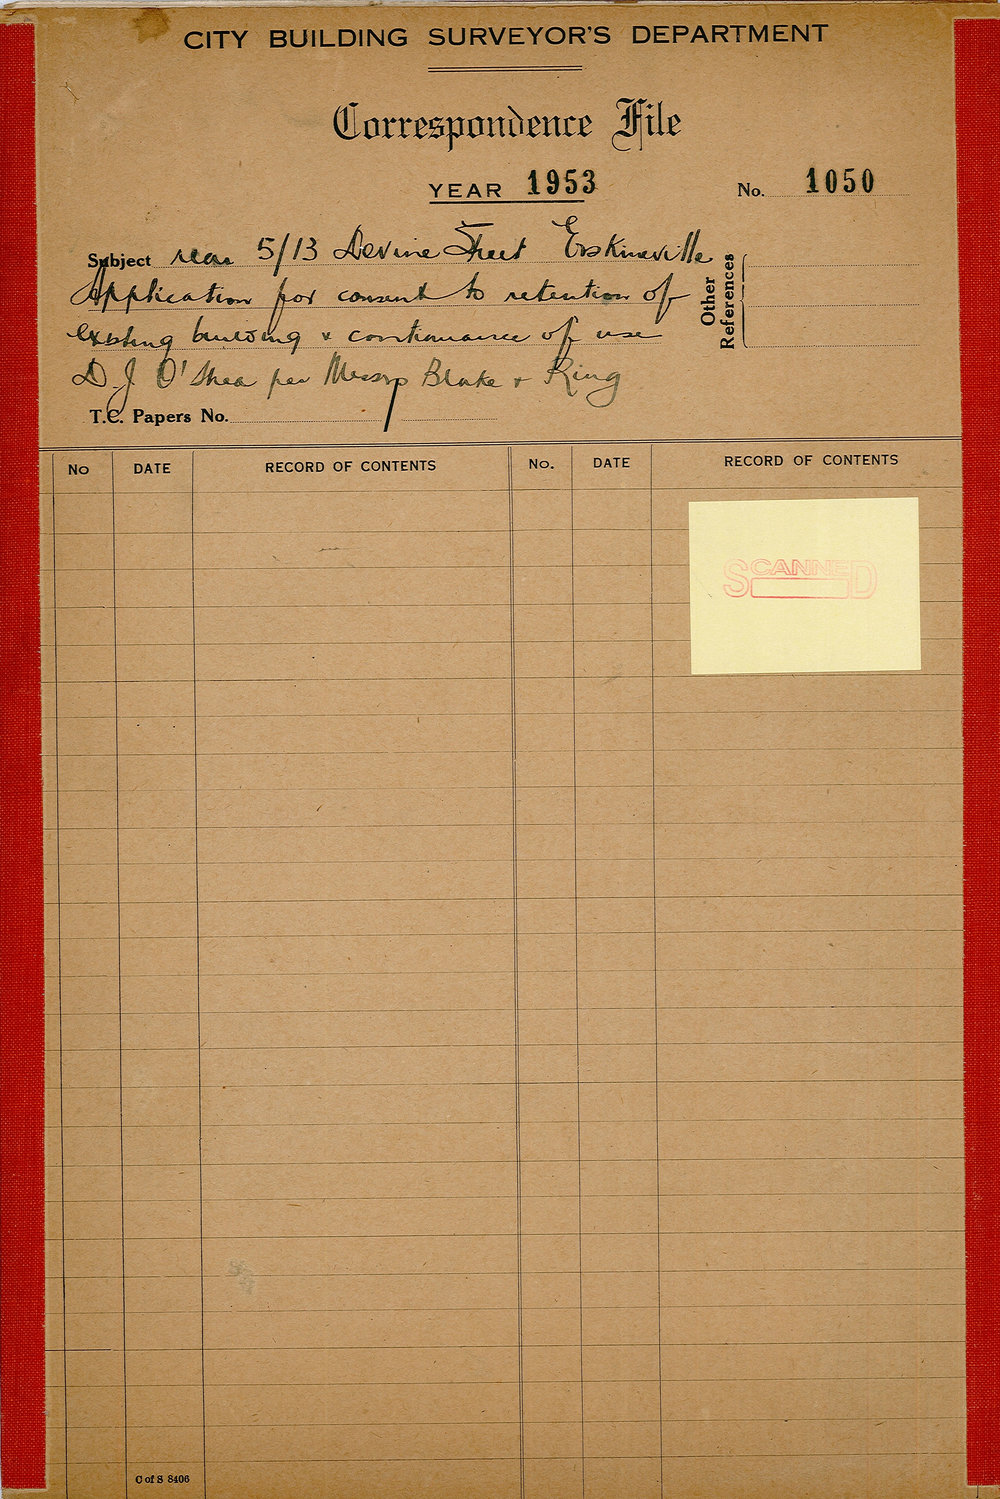 CITY BUILDING SURVEYOR'S DEPARTMENT
Correspondence File
YEAR 1953
No. 1050
Subject rear 5/13 Devine Street Erskineville
Application for consent to retention of
existing building & continuance of use
D. J O'Shea per Messrs Blake & King
Other References
T.C. Papers No.
No DATE RECORD OF CONTENTS No. DATE RECORD OF CONTENTS
SCANNED
C of S 8406